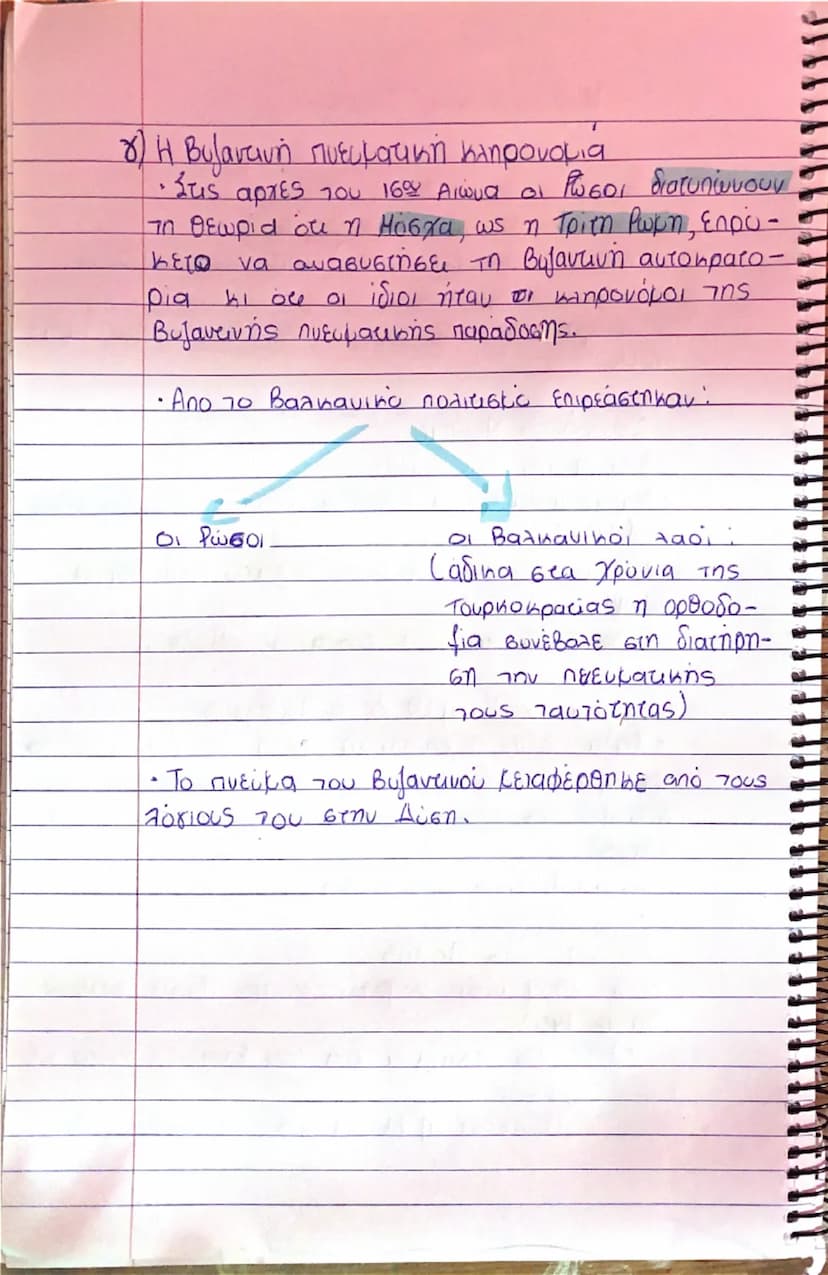 γ) Η Βυζαντινή πνευματική κληρονομιά
· Στις αρχές του 16ου Αιώνα οι Ρώσοι διατυπώνουν
τη θεωρία ότι η Μόσχα, ως η Τρίτη Ρώμη, επρό-
κειτο να ανασυστήσει τη Βυζαντινή αυτοκρατο-
ρία κι ότι οι ίδιοι ήταν οι κληρονόμοι της
Βυζαντινής πνευματικής παράδοσης.
· Από το Βαλκανικό πολιτισμό επιρεάστηκαν:
Οι Ρώσοι
οι Βαλκανικοί λαοί:
(άδικα στα χρόνια της
Τουρκοκρατίας η ορθοδο-
ξία συνέβαλε στη διατήρη-
ση την πνευματικής
τους ταυτότητας)
· Το πνεύμα του Βυζαντινού μεταφέρθηκε από τους
λόγιους του στην Δύση.